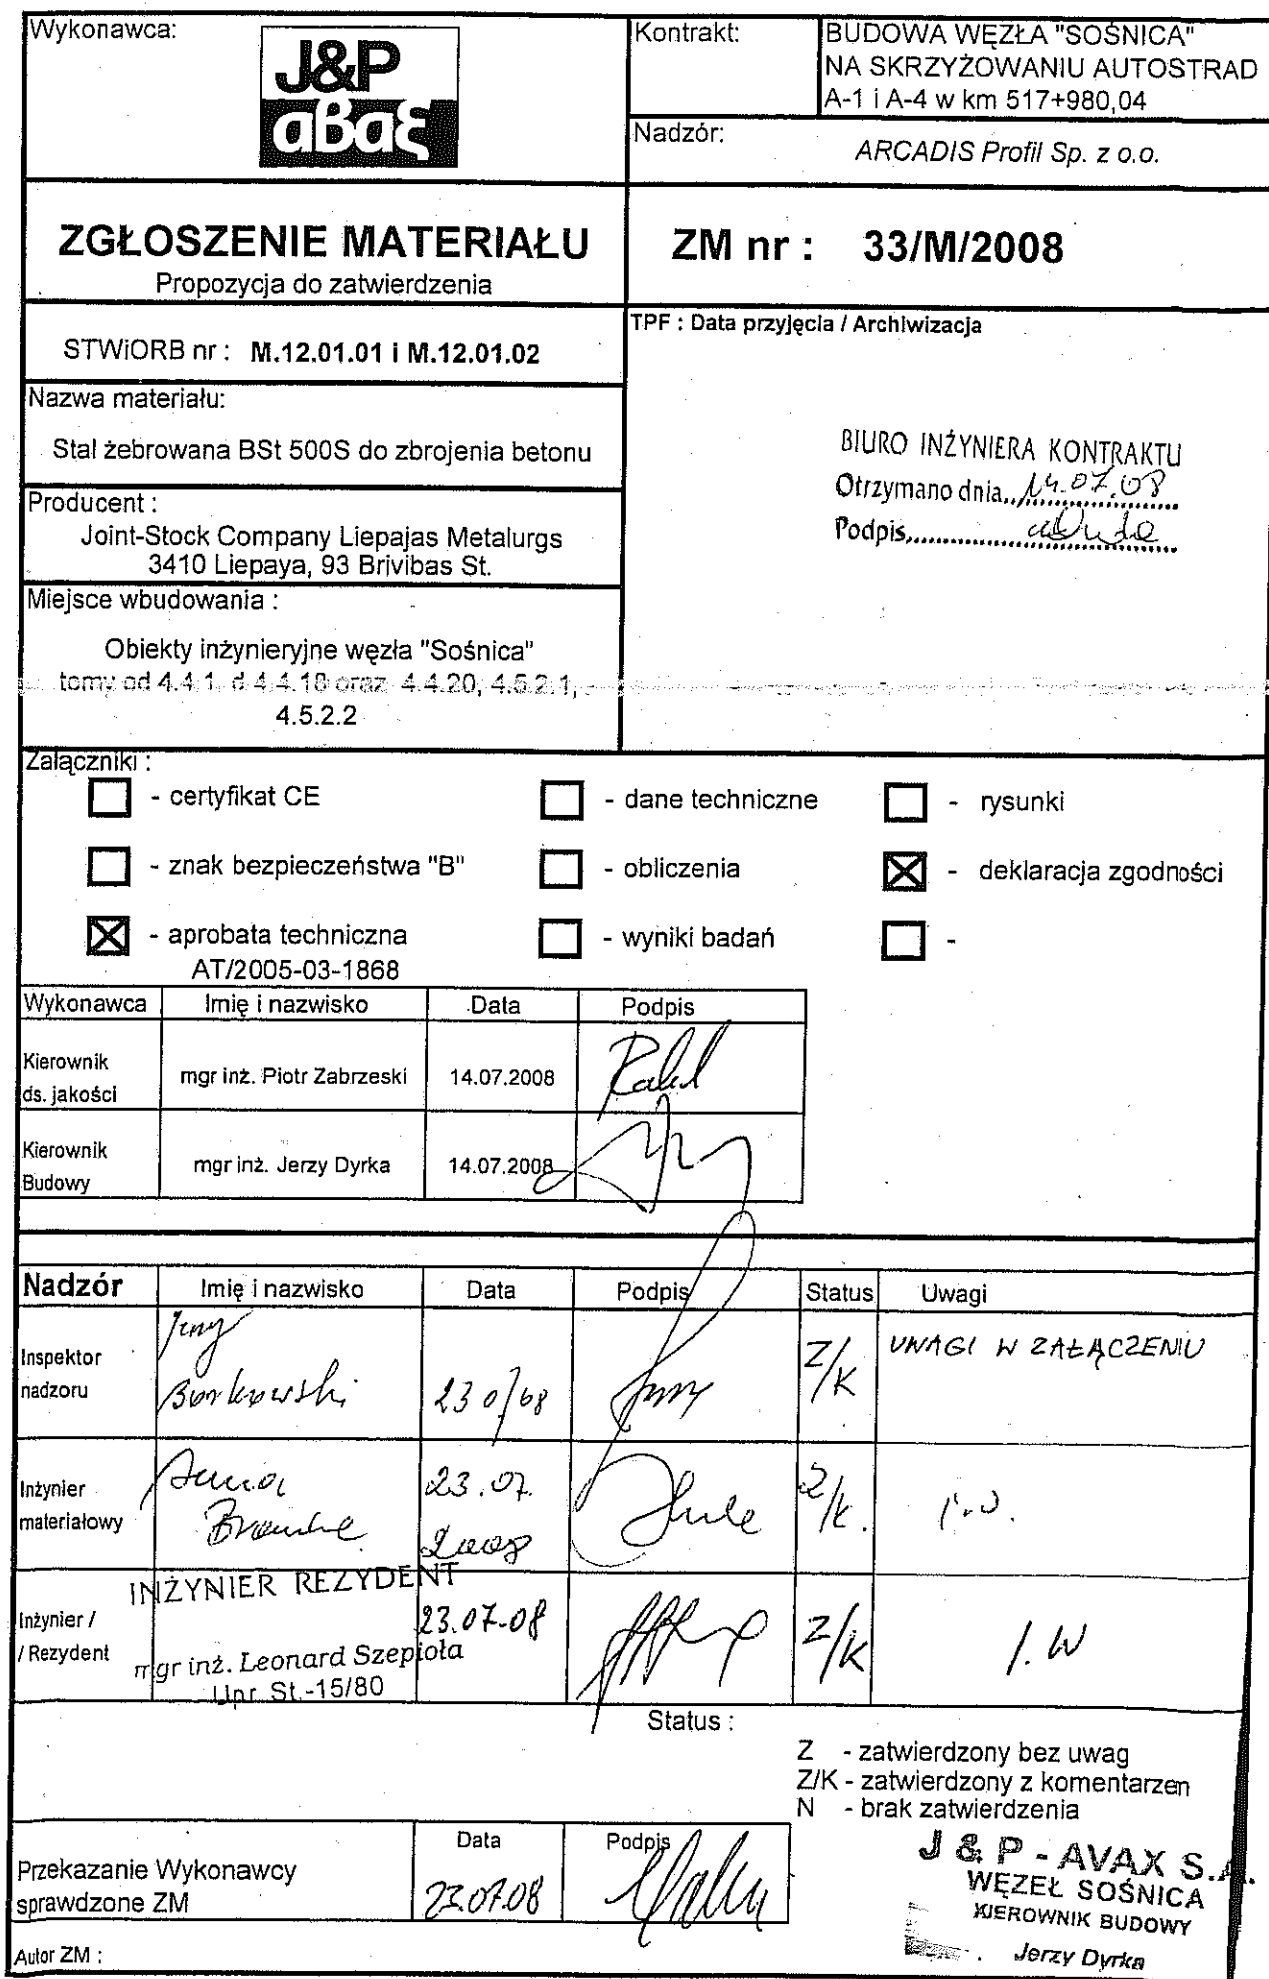 Wykonawca:
J&P
αβαξ
Kontrakt:
BUDOWA WĘZŁA "SOŚNICA"
NA SKRZYŻOWANIU AUTOSTRAD
A-1 i A-4 w km 517+980,04
Nadzór:
ARCADIS Profil Sp. z o.o.
ZGŁOSZENIE MATERIAŁU
Propozycja do zatwierdzenia
ZM nr : 33/M/2008
STWiORB nr : M.12.01.01 i M.12.01.02
TPF : Data przyjęcia / Archiwizacja
Nazwa materiału:
Stal żebrowana BSt 500S do zbrojenia betonu
BIURO INŻYNIERA KONTRAKTU
Otrzymano dnia 14.07.08
Podpis
Producent :
Joint-Stock Company Liepajas Metalurgs
3410 Liepaya, 93 Brivibas St.
Miejsce wbudowania :
Obiekty inżynieryjne węzła "Sośnica"
tomy od 4.4.1, d 4.4.18 oraz 4.4.20, 4.5.2.1,
4.5.2.2
Załączniki :
- certyfikat CE
- dane techniczne
- rysunki
- znak bezpieczeństwa "B"
- obliczenia
- deklaracja zgodności
- aprobata techniczna
AT/2005-03-1868
- wyniki badań
-
Wykonawca Imię i nazwisko Data Podpis
Kierownik
ds. jakości
mgr inż. Piotr Zabrzeski 14.07.2008
Kierownik
Budowy
mgr inż. Jerzy Dyrka 14.07.2008
Nadzór Imię i nazwisko Data Podpis Status Uwagi
Inspektor
nadzoru
Jerzy
Borkowski
23 07 08
Z/K
UWAGI W ZAŁĄCZENIU
Inżynier
materiałowy
Anna
23.07.
2008
Z/K.
j.w.
INŻYNIER REZYDENT
Inżynier /
/ Rezydent
mgr inż. Leonard Szepioła
Upr. St.-15/80
23.07.08
Z/K
j.w
Status :
Z - zatwierdzony bez uwag
Z/K - zatwierdzony z komentarzen
N - brak zatwierdzenia
Przekazanie Wykonawcy
sprawdzone ZM
Data
23.07.08
Podpis
J & P - AVAX S.A.
WĘZEŁ SOŚNICA
KIEROWNIK BUDOWY
Jerzy Dyrka
Autor ZM :